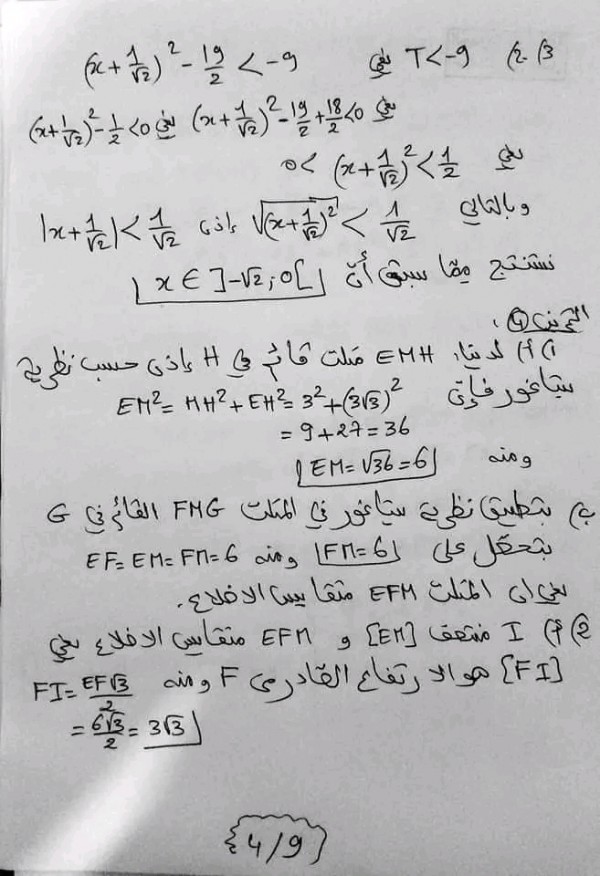 3) 2) T<-9 يعني (x+1/√2)² - 19/2 < -9
يعني (x+1/√2)² - 19/2 + 18/2 <0 يعني (x+1/√2)² - 1/2 <0
يعني 0< (x+1/√2)² < 1/2
وبالتالي √(x+1/√2)² < 1/√2 إذن |x+1/√2| < 1/√2
نستنتج مما سبق أنّ x ∈ ]-√2;0[
التمرين 4:
1) أ) لدينا: EMH مثلث قائم في H إذن حسب نظرية
بيتاغور فإنّ EM² = MH² + EH² = 3² + (3√3)²
= 9+27 = 36
ومنه EM = √36 = 6
ب) بتطبيق نظرية بيتاغور في المثلث FMG القائم في G
نتحصّل على FM=6 ومنه EF = EM = FM = 6
يعني ان المثلث EFM متقايس الاضلاع.
2) أ) I منتصف [EM] و EFM متقايس الاضلاع يعني
[FI] هو الارتفاع الصادر من F ومنه FI = EF√3/2
= 6√3/2 = 3√3
4/9